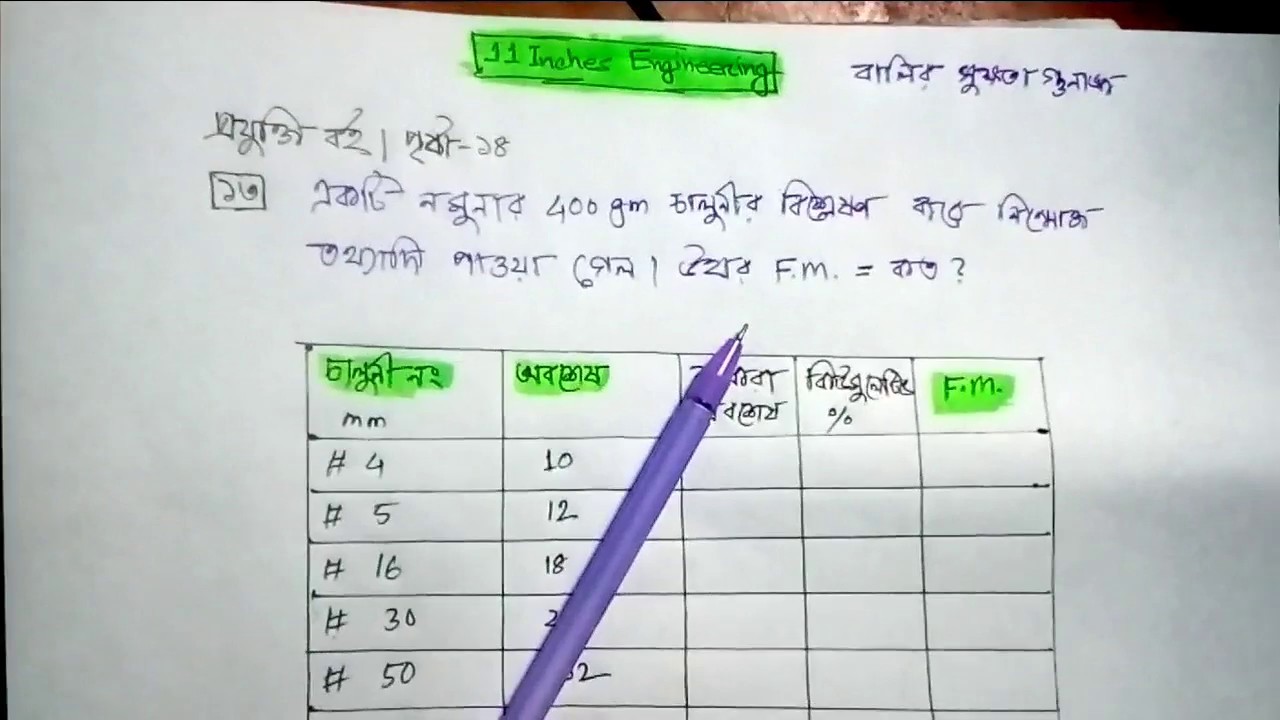 11 Inches Engineering
বালির সুক্ষতা গুনাঙ্ক
প্রযুক্তি বই। পৃষ্ঠা-১৪
১৩ একটি নমুনার 400 gm চালুনীর বিশ্লেষণ করে নিম্নোক্ত
তথ্যাদি পাওয়া গেল। ইহার F.M. = কত?
চালুনী নং mm অবশেষ কিউমুলেটিভ % F.M.
# 4 10
# 5 12
# 16 18
# 30
# 50